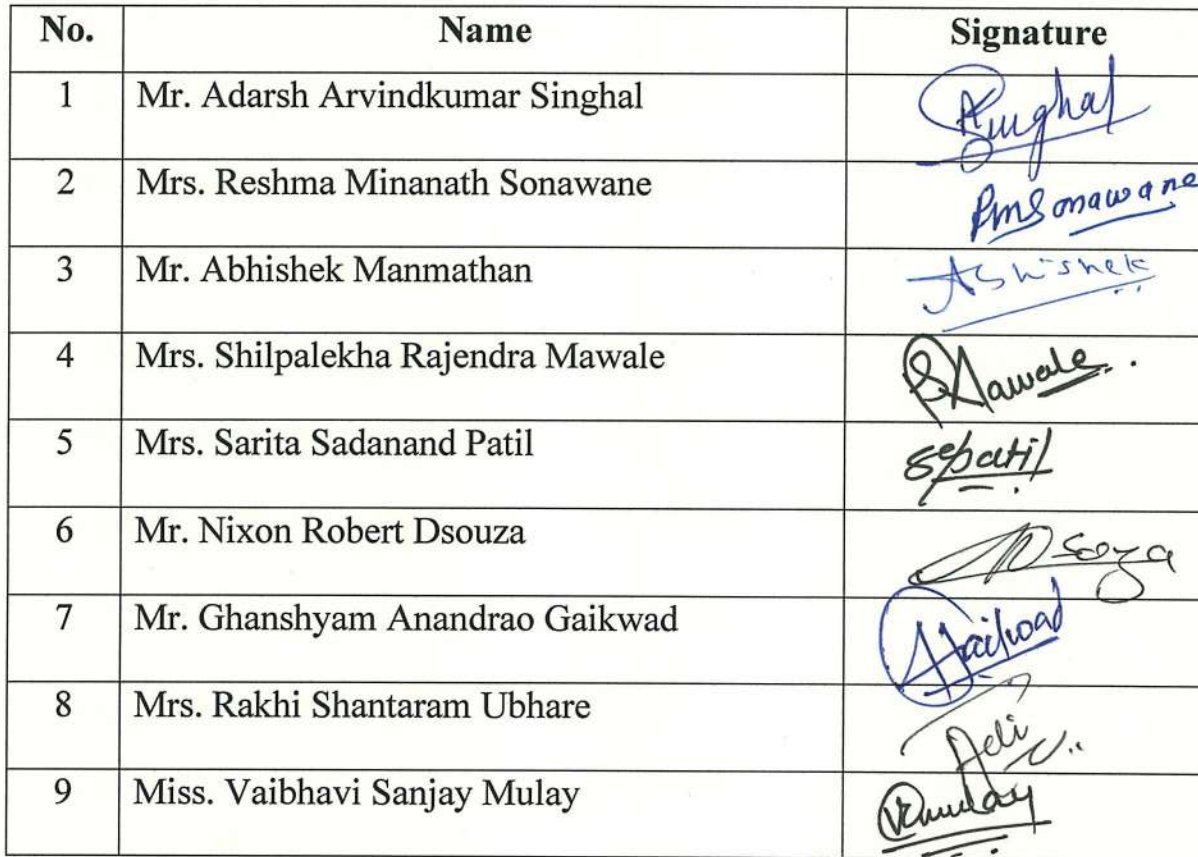 No. Name Signature
1 Mr. Adarsh Arvindkumar Singhal Singhal
2 Mrs. Reshma Minanath Sonawane RMSonawane
3 Mr. Abhishek Manmathan Abhishek
4 Mrs. Shilpalekha Rajendra Mawale Mawale
5 Mrs. Sarita Sadanand Patil sspatil
6 Mr. Nixon Robert Dsouza Dsoza
7 Mr. Ghanshyam Anandrao Gaikwad Gaikwad
8 Mrs. Rakhi Shantaram Ubhare
9 Miss. Vaibhavi Sanjay Mulay Vmulay